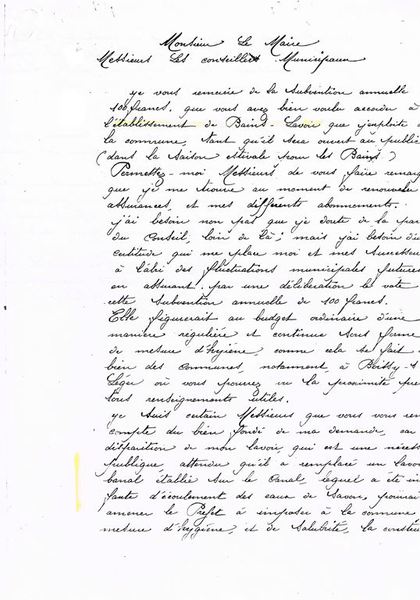 Monsieur Le Maire
Messieurs Les conseillers Municipaux
je vous remercie de la subvention annuelle
100 francs. que vous avez bien voulu accorder à
l'établissement de Bains-Lavoir que j'exploite d
la commune, tant qu'il sera ouvert au public
(dans la saison estivale pour les Bains)
Permettez-moi Messieurs de vous faire remarq
que je me trouve au moment de renouveler
assurances, et mes différents abonnements.
j'ai besoin non pas que je doute de la par
du Conseil, loin de là; mais j'ai besoin d'u
certitude qui me place moi et mes successeu
à l'abri des fluctuations municipales futures
en assurant par une délibération le vote
cette subvention annuelle de 100 francs.
Elle figurerait au budget ordinaire d'une
manière régulière et continue sous forme
de mesure d'hygiène, comme cela se fait
bien des Communes, notamment, à Boissy-S
Léger où vous pourrez vu la proximité pre
tous renseignements utiles.
je suis certain Messieurs que vous vous ren
compte du bien fondé de ma demande, car
disparition de mon lavoir qui est une nécess
publique, attendu qu'il a remplacé un lavoi
banal établie sur le Canal, lequel a été in
faute d'écoulement des eaux de savon, pourrai
amener le Préfet à imposer à la commune
mesure d'hygiène, et de salubrité, la constru